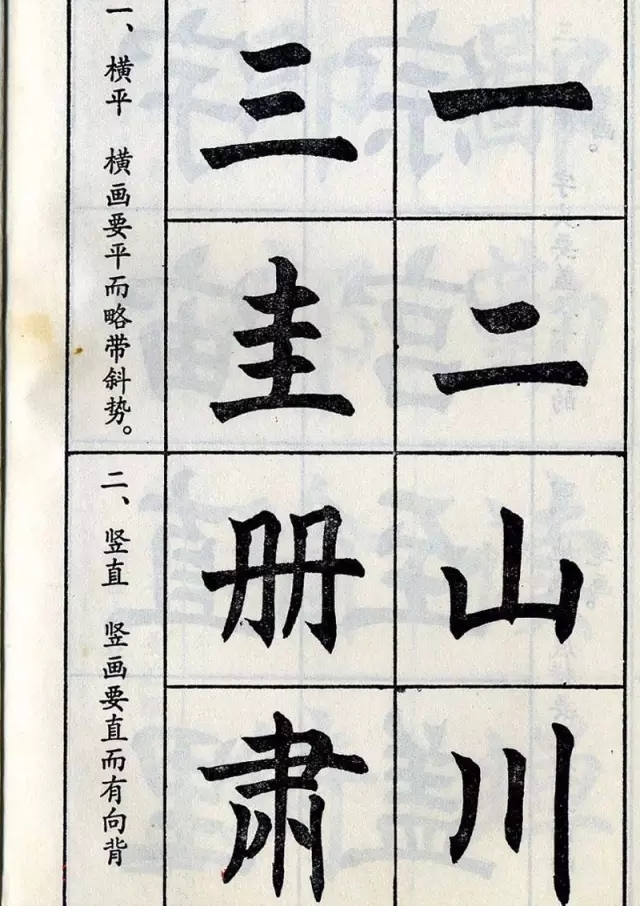 一二
三圭
一、横平 横画要平而略带斜势。
山川
册肃
二、竖直 竖画要直而有向背